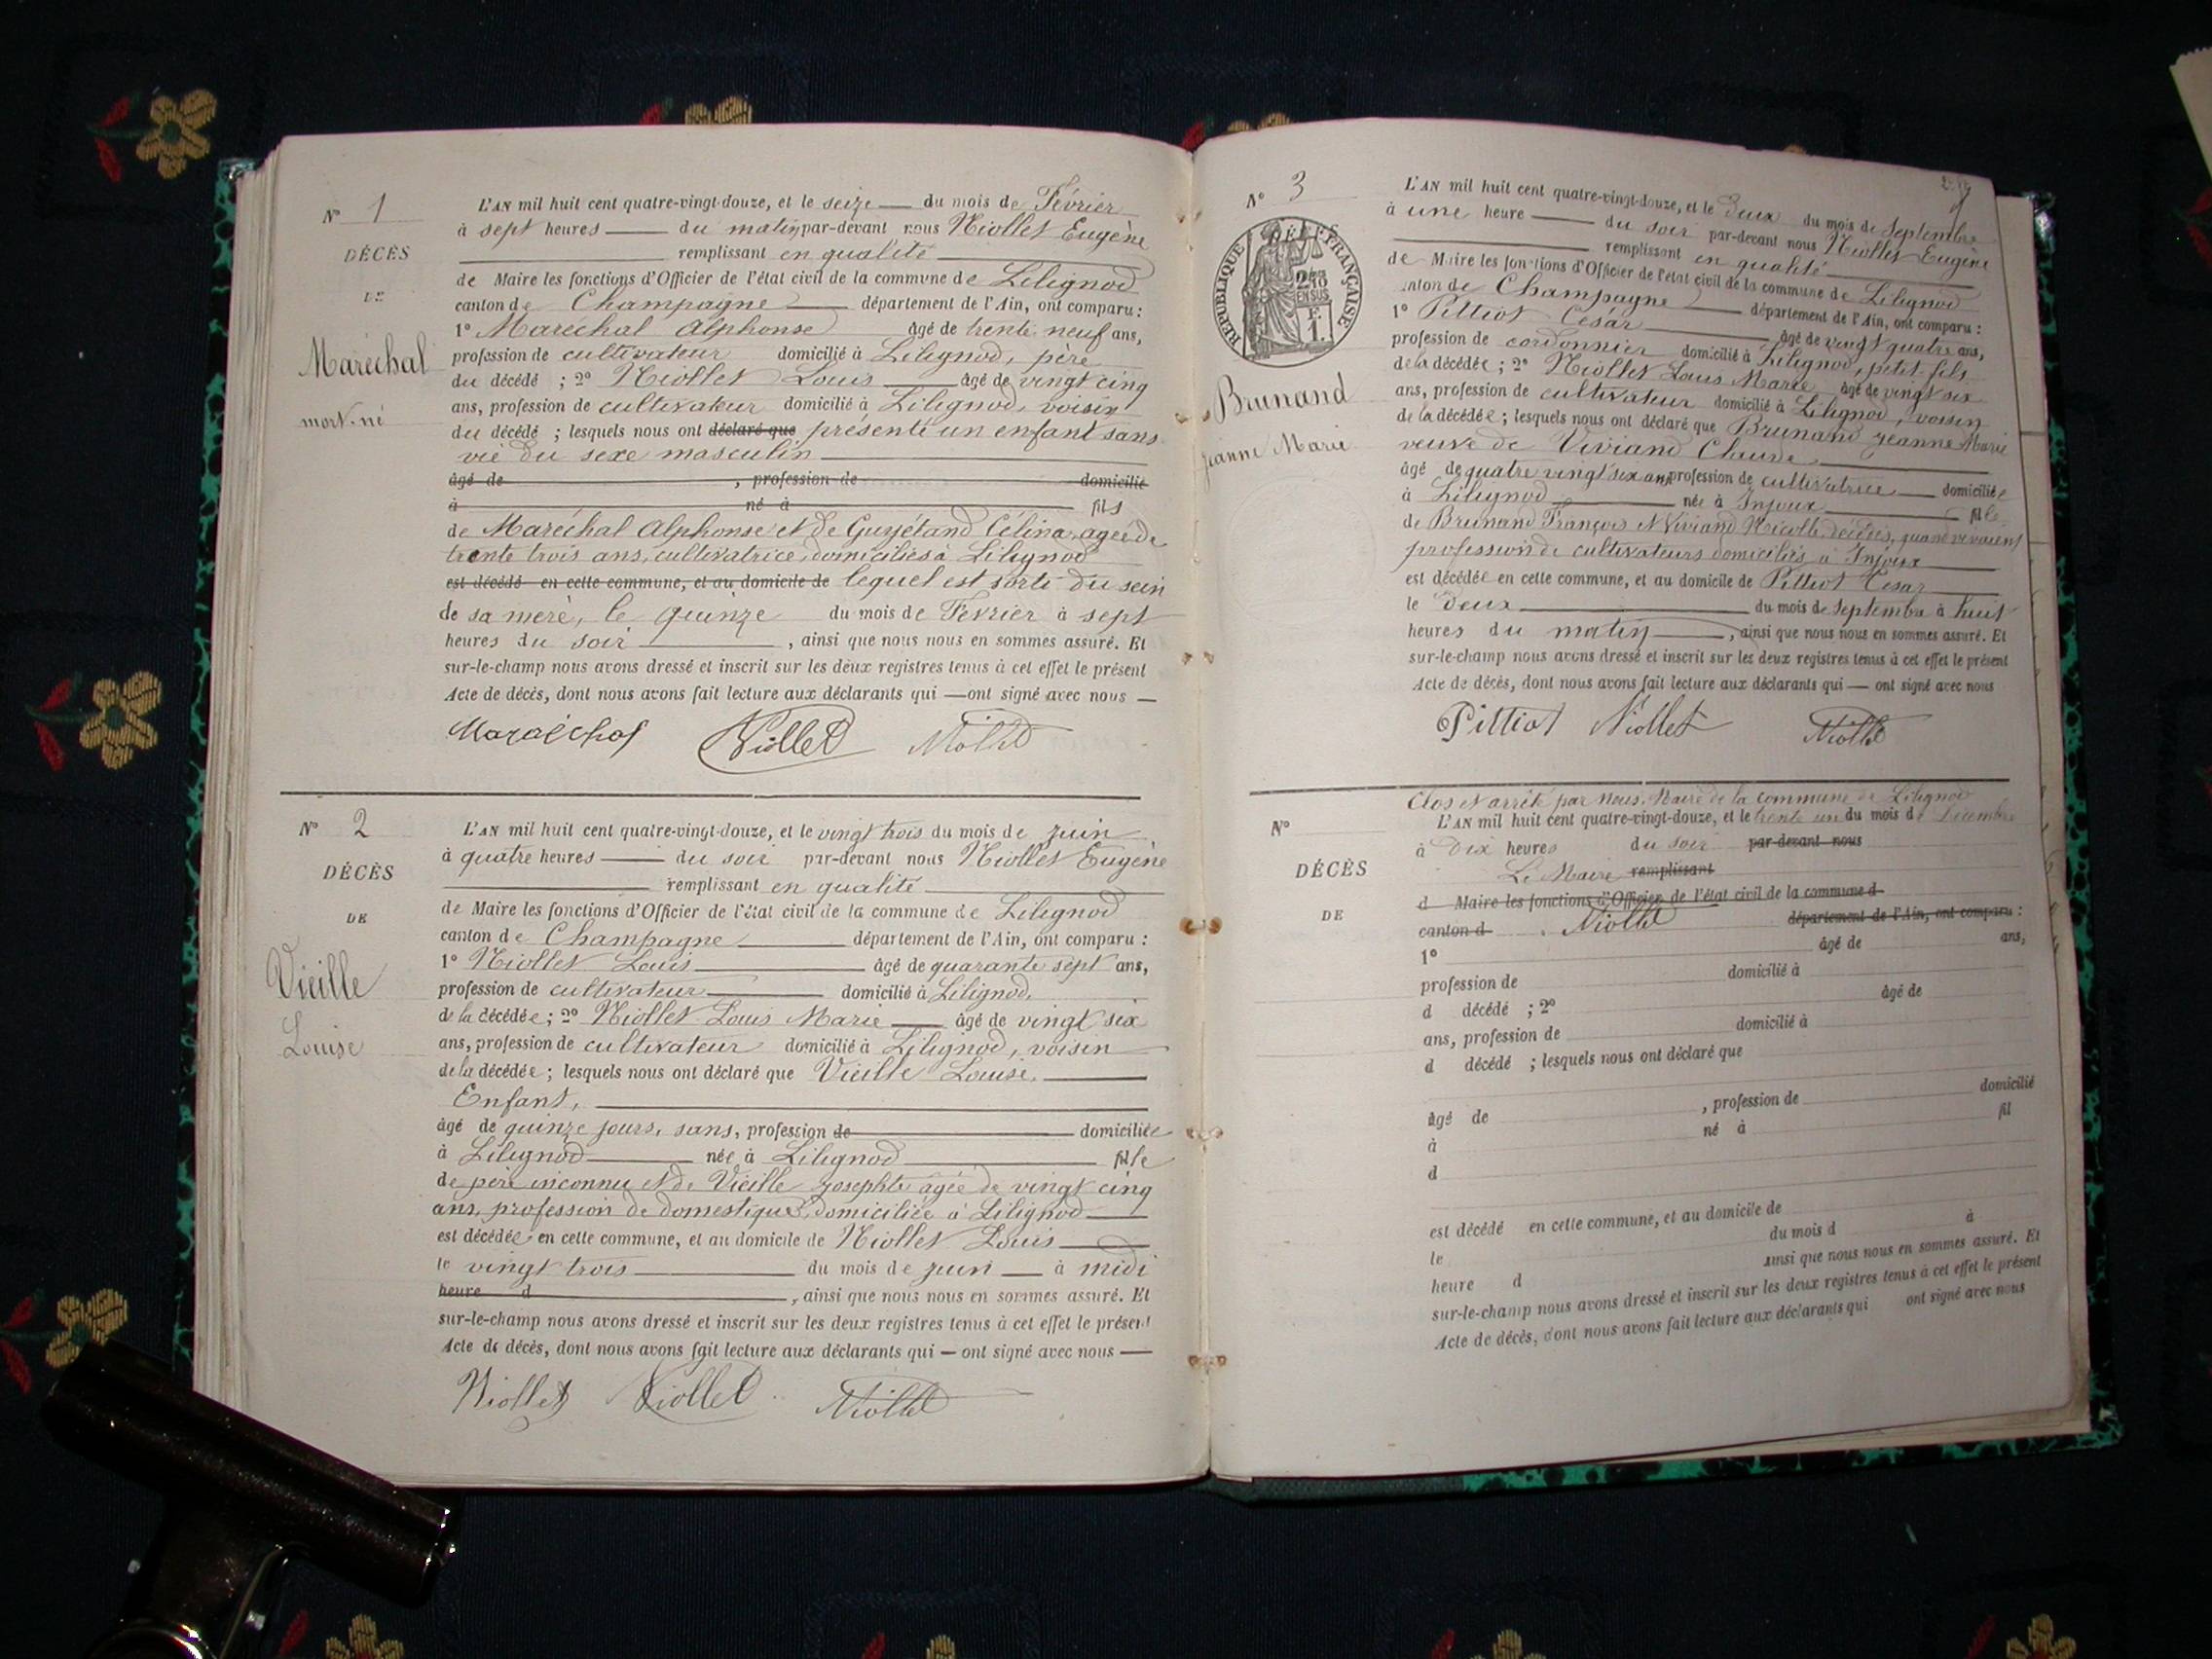 N° 1
DÉCÈS
DE
Maréchal
mort-né
L'AN mil huit cent quatre-vingt-douze, et le seize du mois de Février
à sept heures du matin par-devant nous Niollet Eugène
remplissant en qualité
de Maire les fonctions d'Officier de l'état civil de la commune de Lilignod
canton de Champagne département de l'Ain, ont comparu :
1° Maréchal Alphonse âgé de trente neuf ans,
profession de cultivateur domicilié à Lilignod, père
du décédé ; 2° Niollet Louis âgé de vingt cinq
ans, profession de cultivateur domicilié à Lilignod, voisin
du décédé ; lesquels nous ont déclaré que présenté un enfant sans
vie du sexe masculin
âgé de , profession de domicilié
à né à fils
de Maréchal Alphonse et de Guyétand Célina, agée de
trente trois ans, cultivatrice, domiciliés à Lilignod
est décédé en cette commune, et au domicile de lequel est sorti du sein
de sa mère, le quinze du mois de Février à sept
heures du soir , ainsi que nous nous en sommes assuré. Et
sur-le-champ nous avons dressé et inscrit sur les deux registres tenus à cet effet le présent
Acte de décès, dont nous avons fait lecture aux déclarants qui ont signé avec nous
Maréchal Niollet Niollet
N° 2
DÉCÈS
DE
Vieille
Louise
L'AN mil huit cent quatre-vingt-douze, et le vingt trois du mois de juin
à quatre heures du soir par-devant nous Niollet Eugène
remplissant en qualité
de Maire les fonctions d'Officier de l'état civil de la commune de Lilignod
canton de Champagne département de l'Ain, ont comparu :
1° Niollet Louis âgé de quarante sept ans,
profession de cultivateur domicilié à Lilignod,
de la décédée ; 2° Niollet Louis Marie âgé de vingt six
ans, profession de cultivateur domicilié à Lilignod, voisin
de la décédée ; lesquels nous ont déclaré que Vieille Louise,
Enfant,
âgé de quinze jours, sans, profession de domiciliée
à Lilignod née à Lilignod fille
de père inconnu et de Vieille Josephte agée de vingt cinq
ans, profession de domestique, domiciliée à Lilignod
est décédée en cette commune, et au domicile de Niollet Louis
le vingt trois du mois de juin à midi
heure d , ainsi que nous nous en sommes assuré. Et
sur-le-champ nous avons dressé et inscrit sur les deux registres tenus à cet effet le présent
Acte de décès, dont nous avons fait lecture aux déclarants qui ont signé avec nous
Niollet Niollet Niollet
N° 3
RÉPUBLIQUE FRANÇAISE
2/10
EN SUS
F.
1.
Brunand
Jeanne Marie
L'AN mil huit cent quatre-vingt-douze, et le deux du mois de Septembre
à une heure du soir par-devant nous Niollet Eugène
remplissant en qualité
de Maire les fonctions d'Officier de l'état civil de la commune de Lilignod
canton de Champagne département de l'Ain, ont comparu :
1° Pittiot César âgé de vingt quatre ans,
profession de cordonnier domicilié à Lilignod, petit-fils
de la décédée ; 2° Niollet Louis Marie âgé de vingt six
ans, profession de cultivateur domicilié à Lilignod, voisin
de la décédée ; lesquels nous ont déclaré que Brunand Jeanne Marie
veuve de Viviand Claude
âgé de quatre vingt six ans profession de cultivatrice domiciliée
à Lilignod née à Injoux fille
de Brunand François et Viviand Nicolle, décédés, quand vivaient
profession de cultivateurs domiciliés à Injoux
est décédée en cette commune, et au domicile de Pittiot César
le deux du mois de Septembre à huit
heures du matin , ainsi que nous nous en sommes assuré. Et
sur-le-champ nous avons dressé et inscrit sur les deux registres tenus à cet effet le présent
Acte de décès, dont nous avons fait lecture aux déclarants qui ont signé avec nous
Pittiot Niollet Niollet
Clos et arrêté par nous, Maire de la commune de Lilignod
N°
DÉCÈS
DE
L'AN mil huit cent quatre-vingt-douze, et le trente un du mois de Décembre
à Dix heures du soir par-devant nous
Le Maire remplissant
d Maire les fonctions d'Officier de l'état civil de la commune d
canton d Niollet département de l'Ain, ont comparu :
1° âgé de ans,
profession de domicilié à
d décédé ; 2° âgé de
ans, profession de domicilié à
d décédé ; lesquels nous ont déclaré que
âgé de , profession de domicilié
à né à fil
d
est décédé en cette commune, et au domicile de
le du mois d à
heure d ainsi que nous nous en sommes assuré. Et
sur-le-champ nous avons dressé et inscrit sur les deux registres tenus à cet effet le présent
Acte de décès, dont nous avons fait lecture aux déclarants qui ont signé avec nous